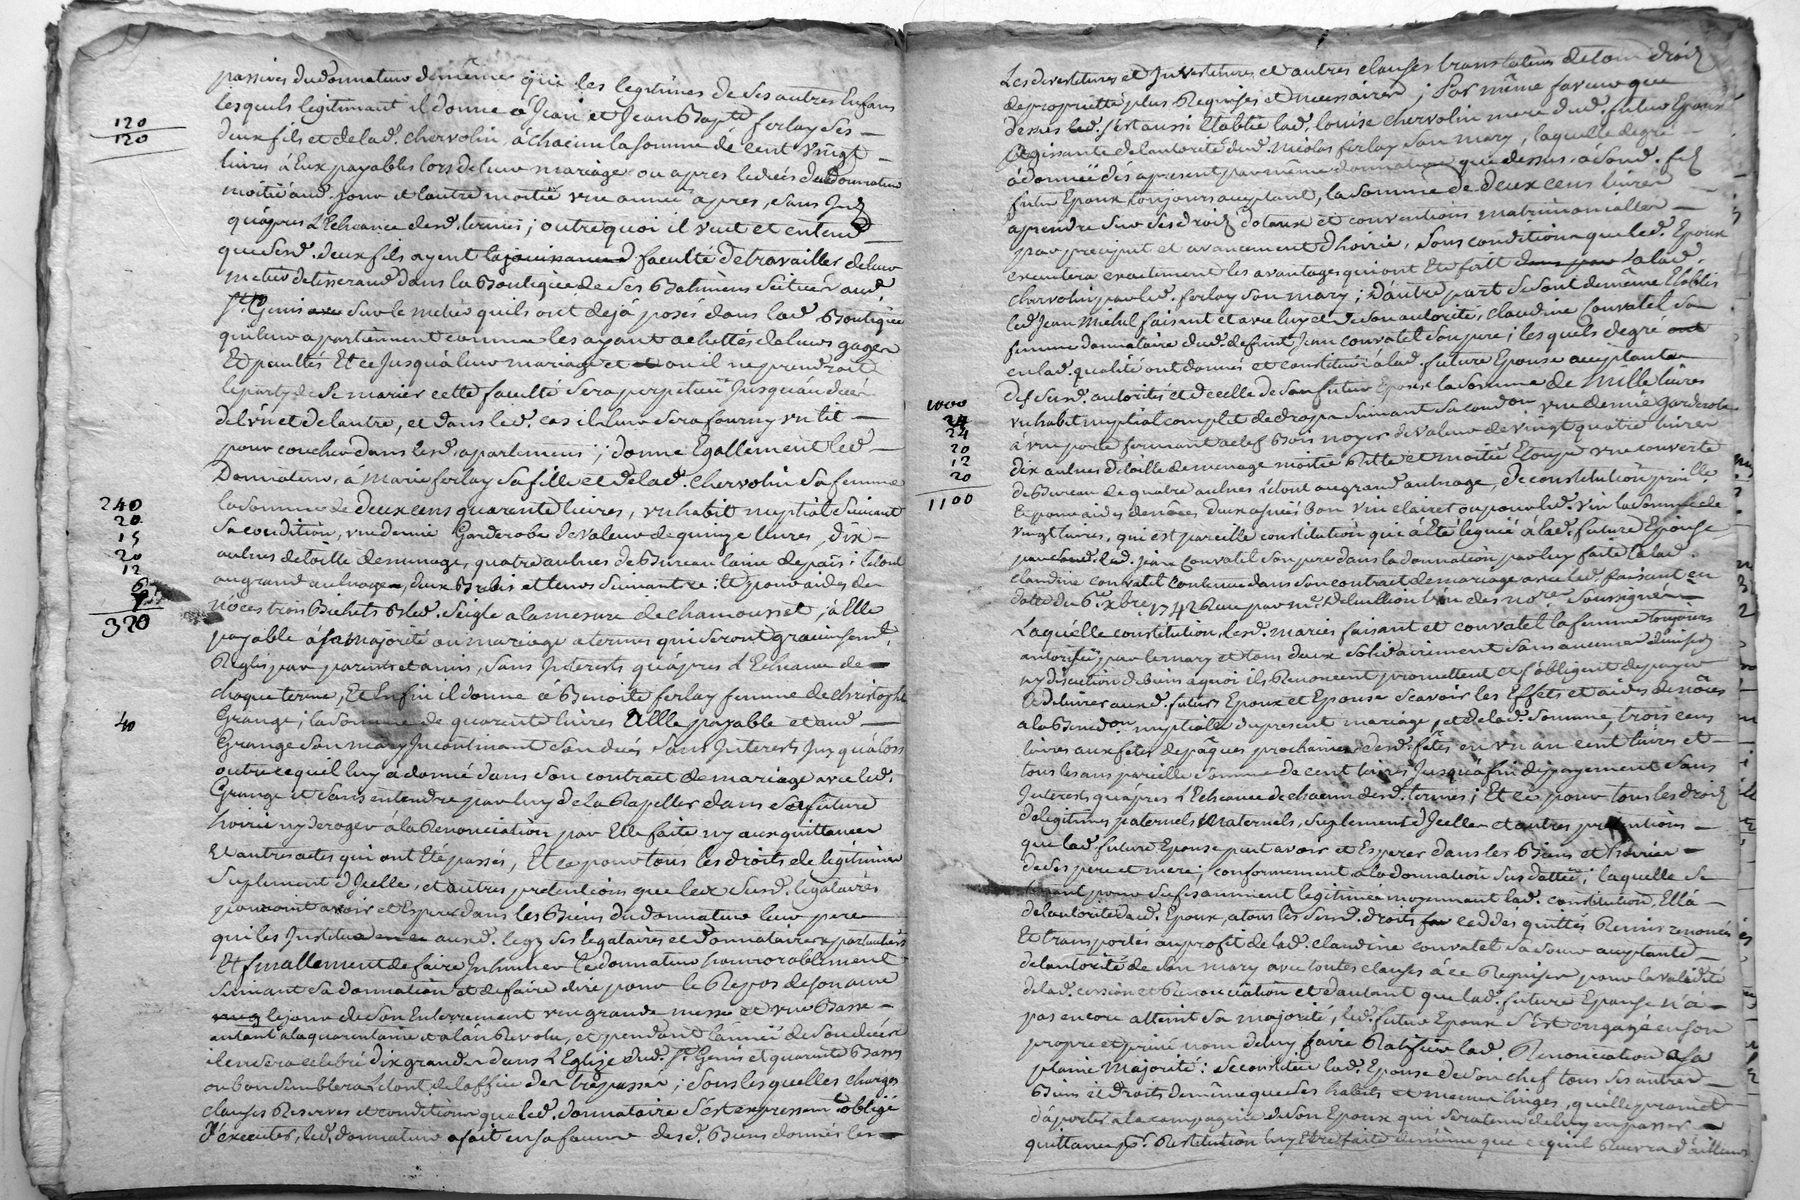 passives du donnateur de même que les legitimes de ses autres Enfans
lesquels legitimant il donne à Jean et Jean Bapte ferlay ses
120
120
deux fils et de lad. Chervolin, à chacun la somme de cent vingt
livres à Eux payables lors de leur mariage ou apres le deces du donnateur
moitié aud. jour et l'autre moitié une année après, sans
qu'apres l'Echeance desd. termes; outre quoi il veut et entend
que sesd. deux fils ayent la jouissance faculté de travailler de leur
metier de tisserand dans la Boutique de ses Batimens scitués aud.
St Genis sur le metier qu'ils ont deja posés dans lad. Boutique
qui leur apartiennent comme les ayant achettés de leurs gages
Et jusqu'à leur mariage et ou il ne prendroit
le party de se marier cette faculté sera perpetuée jusqu'au deces
de l'un et de l'autre, et dans led. cas il leur sera fourny un lit
pour coucher dans lesd. apartemens; donne Egallement led.
Donnateur, à Marie ferlay sa fille et de lad. Chervolin sa femme
240
20
15
20
12
6
320
la somme de deux cens quarente livres, un habit nuptial suivant
sa condition, une demie Garderobe de valeur de quinze livres, dix
aulnes de toille de menage, quatre aulnes de Bureau laine de païs; le tout
au grand aulnage, deux Brebis et leurs suivantes: Et pour aides de
nôces trois Bichets Bled Seigle à la mesure de chamousset, à Elle
payable à sa majorité ou mariage à termes qui seront gracieusemt
Reglés par parents et amis, sans Interests qu'apres l'Echeance de
chaque terme, Et Enfin il donne à Benoite ferlay femme de christophe
40
Grange; la somme de quarente livres à Elle payable et aud.
Grange son mary Incontinant son deces sans Interests jusqu'alors
outre ce quil luy à donné dans son contract de mariage avec led.
Grange et sans entendre par luy de la Rapeller dans sa future
hoirie ny deroger à la Renonciation par Elle faite ny aux quittances
Et autres actes qui ont Eté passés, Et ce pour tous les droits de legitimes
suplement d'Icelles, et autres pretentions que les susd. legataires
pourront avoir et Esperer dans les Biens du donnateur leur pere
qui les Institue auxd. legs ses legataires et donnataires particuliers
Et finallement de faire Inhumer le donnateur honnorablement
suivant sa donnation et de faire dire pour le Repos de son ame
le jour de son Enterrement une grande messe et une Basse
autant à la quarentaine et à l'an Revolu, et pendant l'année de son deces
il en sera celebré dix grandes dans l'Eglize dud. St Genis et quarente Basses
ou bon semblera le tout de l'office des trépassés; sous lesquelles charges
clauses Reserves et conditions que led. donnataire s'est expressemt obligé
d'executer, led. donnateur a fait en sa faveur desd. Biens donnés les
Les devestitures et Investitures et autres clauses translatives de tous droits
de proprietté plus Requises et necessaires; Par même faveur que
dessus led. s'est aussi Etablie lad. Louise Chervolin mere dud. futur Epoux
agissante de l'autorité dud. Nicolas ferlay son mary, laquelle de gré
à donné dès apresent par même donnation que dessus, à sond. fils
futur Epoux toujours acceptant, la somme de deux cens livres
a prendre sur ses droits dotaux et conventions matrimonialles
par preciput et avancement d'hoirie, sous condition que led. Epoux
executera exactement les avantages qui ont Eté fait à lad.
Chervolin par led. ferlay son mary; D'autre part se sont de même Etablis
led. Jean Michel faisant et avec luy et de son autorité, Claudine Couvatel sa
femme donnataire dud. defunt Jean Couvatel son pere; lesquels de gré
en lad. qualité ont donnés et constitués à lad. future Epouse acceptante
des susd. autorités et de celle de son futur Epoux la somme de mille livres
1000
24
24
20
12
20
1100
un habit nuptial complet de drap suivant sa condon une demie garderobe
à une porte fermant à clef Bois noyer de valeur de vingt quatre livres
dix aulnes de toille de menage moitié Ritte et moitié Etoupe une couverte
de Bureau de quatre aulnes le tout au grand aulnage, de constitution
Et pour aides de nôces deux asnées bon vin clairet ou pour led. vin la somme de
vingt livres, qui est pareille constitution qui à Eté leguée à lad. future Epouse
par sond. led. Jean Couvatel son pere dans la donnation par luy faite à lad.
Claudine Couvatel contenue dans son contract de mariage avec led. faisant en
datte du 6e xbre 1742 Reçu par Me l'un des nores soussignés
Laquelle constitution, lesd. mariés faisant et couvatel la femme toujours
autorisée par le mary et tous deux solidairement sans aucune division
ny discution de biens à quoi ils Renoncent promettent et s'obligent de payer
Et delivrer auxd. futurs Epoux et Epouse sçavoir les Effets et aides de nôces
a la Bened.on nuptiale du present mariage, et de lad. somme trois cens
livres aux fetes de pâques prochaines desd. fêtes en un an cent livres et
tous les ans pareille somme de cent livres jusqu'à fin de payement sans
Interests qu'apres l'Echeance de chacun desd. termes; Et ce pour tous les droits
de legitimes paternels, Maternels, suplement d'Icelles et autres pretentions
que lad. future Epouse peut avoir et Esperer dans les Biens et hoiries
de ses pere et mere; conformement à la donnation sus dattée; laquelle se
tenant pour suffisamment legitimée moyennant lad. constitution, Ella
de l'autorité dud. Epoux, à tous les susd. droits ceddés quittés Remis renoncés
Et transportés au profit de lad. Claudine Couvatel sa soeur acceptante
de l'autorité de son mary avec toutes clauses à ce Requises pour la validité
de lad. cession et Renonciation et d'autant que lad. future Epouse n'à
pas encore atteint sa majorité, led. futur Epoux s'est engagé en son
propre et privé nom de luy faire Ratiffier lad. Renonciation à sa
plaine majorité: se constitue lad. Epouse de son chef tous ses autres
Biens et droits de même que ses habits et menus linges, qu'elle promet
d'aporter à la compagnie de son Epoux qui sera tenu de luy en passer
quittance pr. Restitution luy Etre faite de même que ce qu'il Recevra d'ailleurs